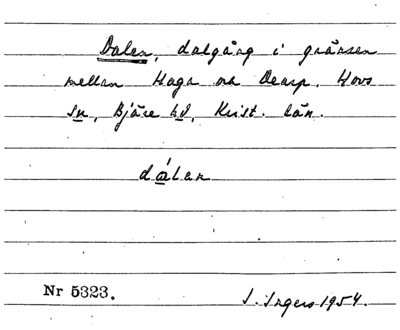 Dalen, dalgång i gränsen
mellan Haga och Dearp. Hovs
sn, Bjäre hd, Krist. län.
dálen
Nr 5323.
I. Ingers 1954.